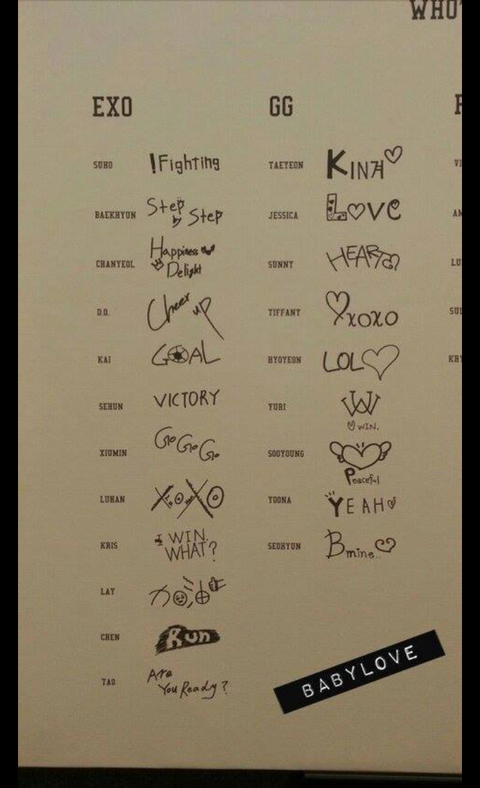 WHO'
EXO
SUHO !Fighting
BAEKHYUN Step by Step
CHANYEOL Happiness Delight
D.O. Cheer up
KAI GOAL
SEHUN VICTORY
XIUMIN Go Go Go
LUHAN XOXO
KRIS I WIN.
WHAT?
LAY
CHEN Run
TAO Are
You Ready?
GG
TAEYEON KINA
JESSICA LOVE
SUNNY HEART
TIFFANY XOXO
HYOYEON LOL
YURI W
WIN.
SOOYOUNG Peaceful
YOONA YEAH
SEOHYUN B mine..
F
VI
AM
LU
SUL
KRY
BABYLOVE